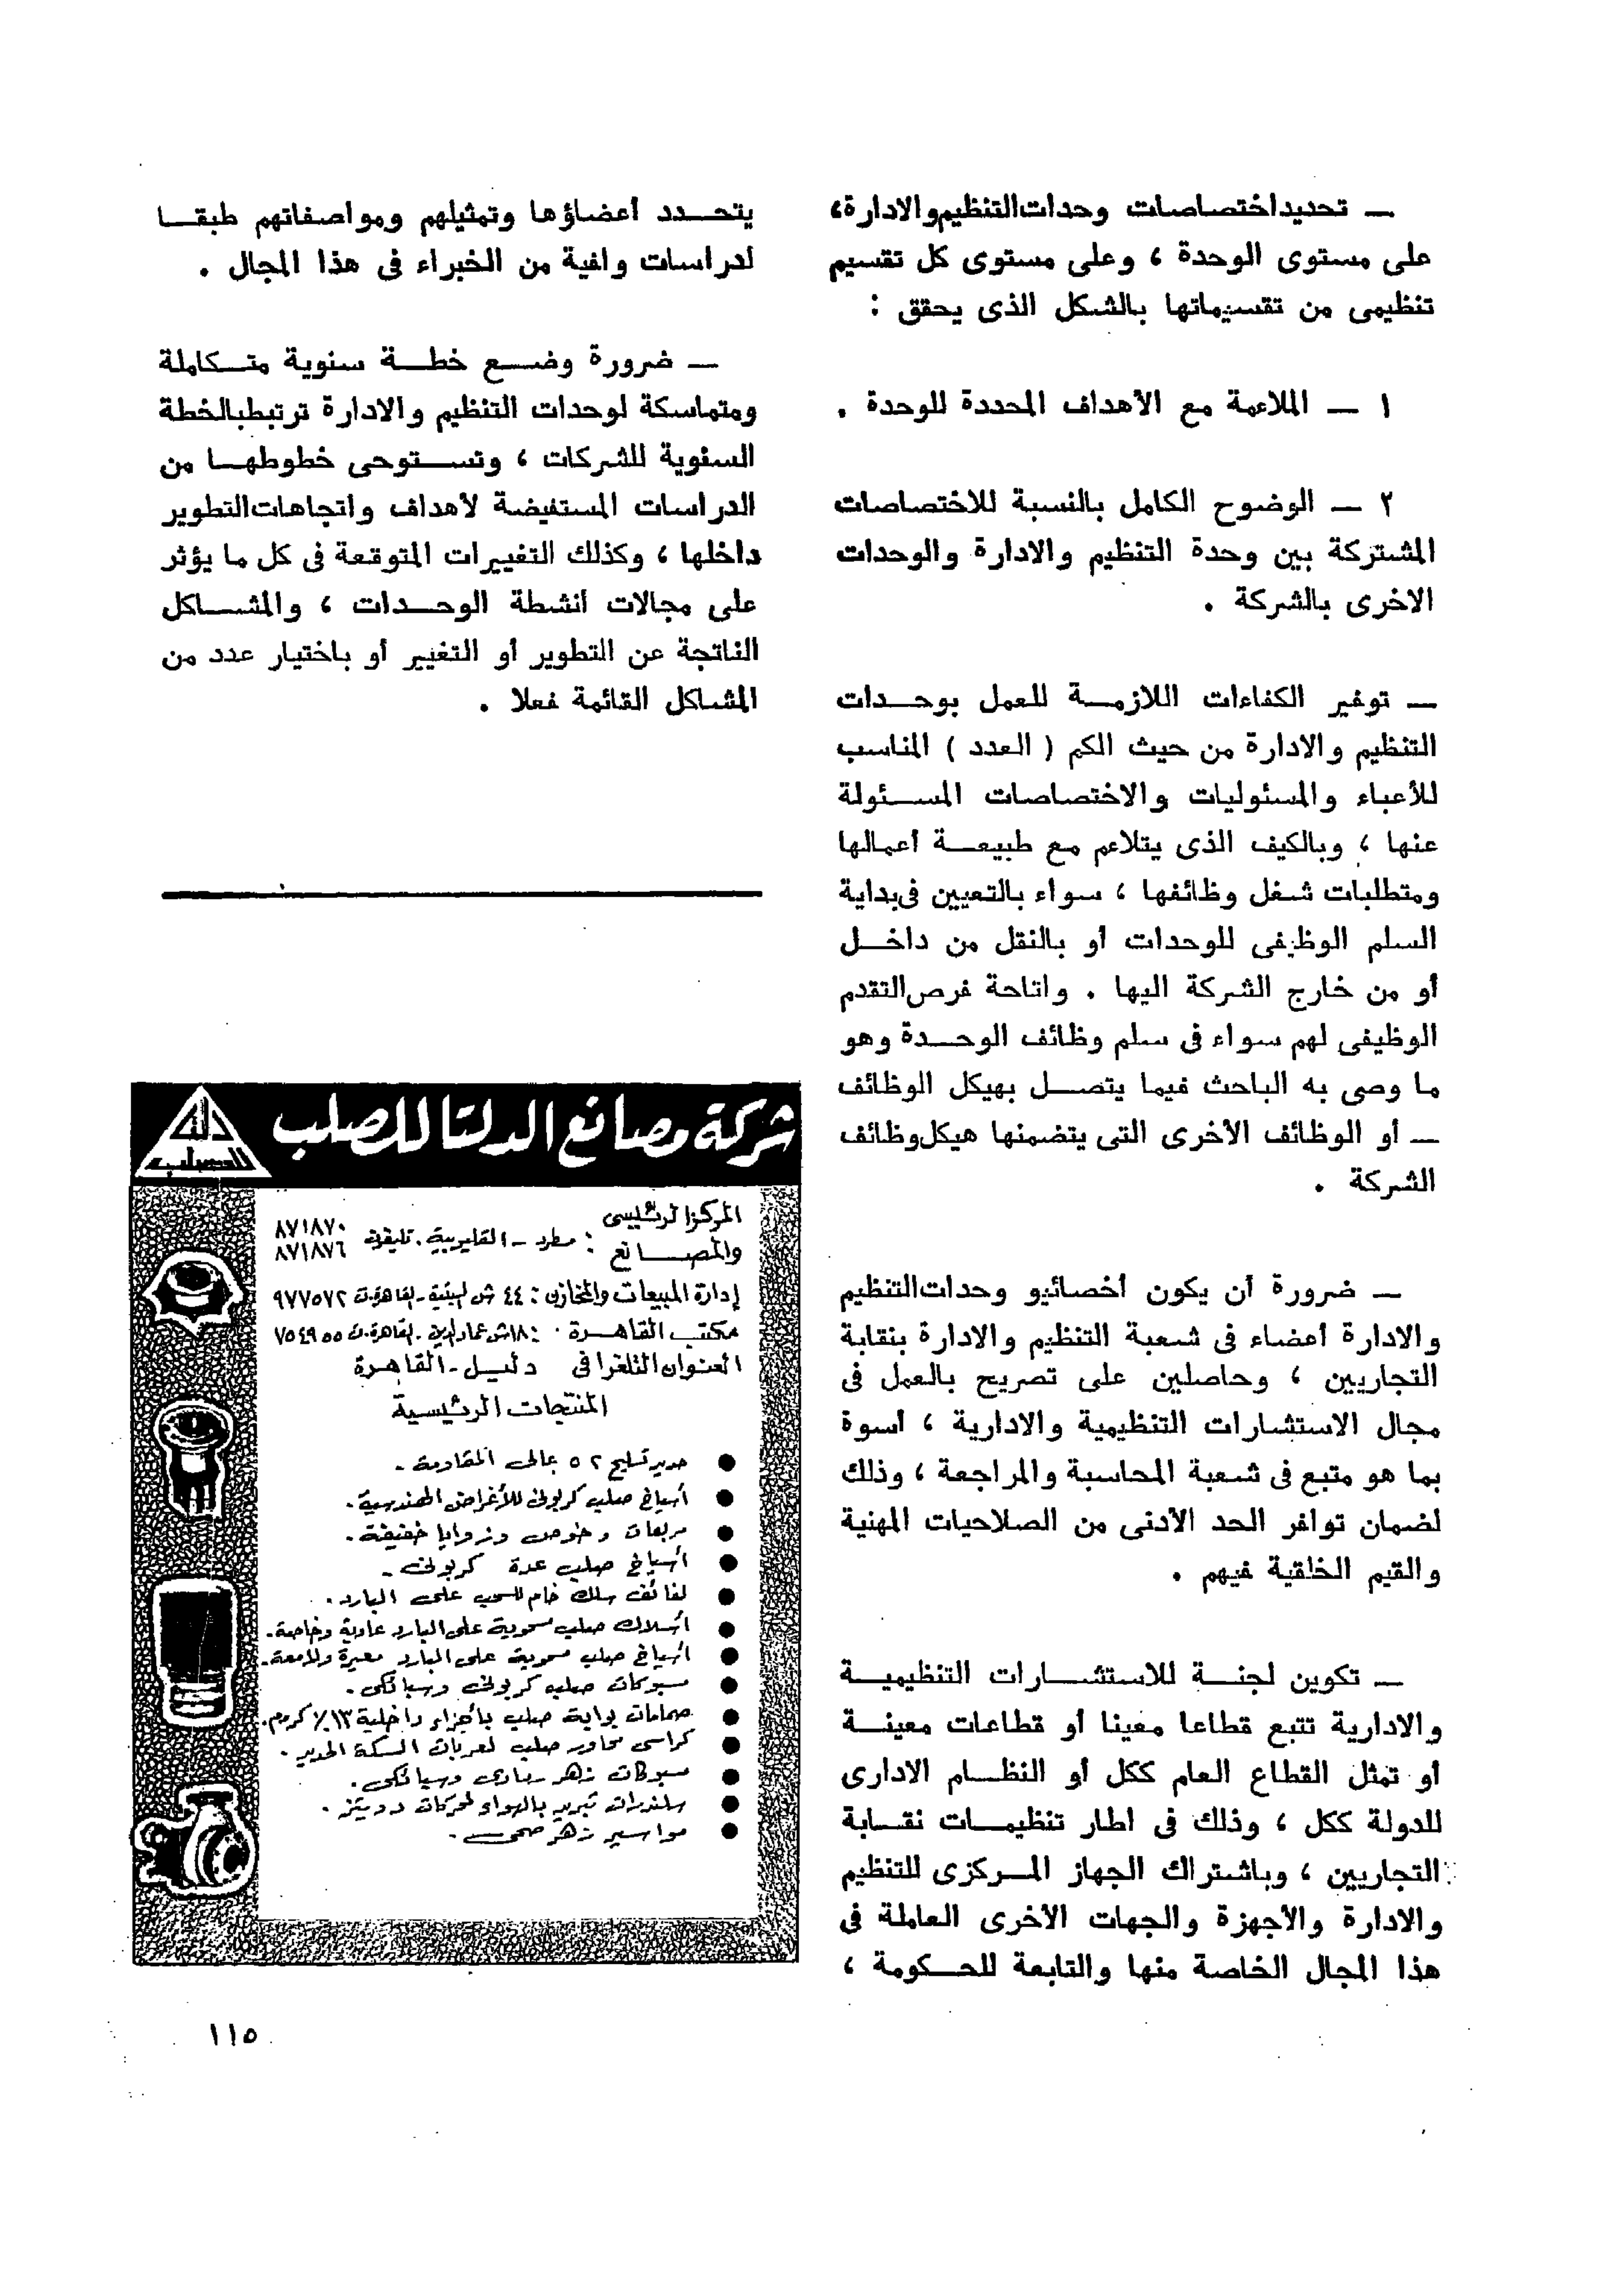 — تحديد اختصاصات وحدات التنظيم والادارة،
على مستوى الوحدة ، وعلى مستوى كل تقسيم
تنظيمى من تقسيماتها بالشكل الذى يحقق :
١ — الملاءمة مع الأهداف المحددة للوحدة .
٢ — الوضوح الكامل بالنسبة للاختصاصات
المشتركة بين وحدة التنظيم والادارة والوحدات
الاخرى بالشركة .
— توفير الكفاءات اللازمة للعمل بوحدات
التنظيم والادارة من حيث الكم ( العدد ) المناسب
للأعباء والمسئوليات والاختصاصات المسئولة
عنها ، وبالكيف الذى يتلاءم مع طبيعة أعمالها
ومتطلبات شغل وظائفها ، سواء بالتعيين فى بداية
السلم الوظيفى للوحدات أو بالنقل من داخل
أو من خارج الشركة اليها . واتاحة فرص التقدم
الوظيفى لهم سواء فى سلم وظائف الوحدة وهو
ما وصى به الباحث فيما يتصل بهيكل الوظائف
— أو الوظائف الأخرى التى يتضمنها هيكل وظائف
الشركة .
— ضرورة أن يكون أخصائيو وحدات التنظيم
والادارة أعضاء فى شعبة التنظيم والادارة بنقابة
التجاريين ، وحاصلين على تصريح بالعمل فى
مجال الاستشارات التنظيمية والادارية ، أسوة
بما هو متبع فى شعبة المحاسبة والمراجعة ، وذلك
لضمان توافر الحد الأدنى من الصلاحيات المهنية
والقيم الخلقية فيهم .
— تكوين لجنة للاستشارات التنظيمية
والادارية تتبع قطاعا معينا أو قطاعات معينة
أو تمثل القطاع العام ككل أو النظام الادارى
للدولة ككل ، وذلك فى اطار تنظيمات نقابة
التجاريين ، وباشتراك الجهاز المركزى للتنظيم
والادارة والأجهزة والجهات الأخرى العاملة فى
هذا المجال الخاصة منها والتابعة للحكومة ،
يتحدد أعضاؤها وتمثيلهم ومواصفاتهم طبقا
لدراسات وافية من الخبراء فى هذا المجال .
— ضرورة وضع خطة سنوية متكاملة
ومتماسكة لوحدات التنظيم والادارة ترتبط بالخطة
السنوية للشركات ، وتستوحى خطوطها من
الدراسات المستفيضة لأهداف واتجاهات التطوير
داخلها ، وكذلك التغييرات المتوقعة فى كل ما يؤثر
على مجالات أنشطة الوحدات ، والمشاكل
الناتجة عن التطوير أو التغيير أو باختيار عدد من
المشاكل القائمة فعلا .
شركة مصانع الدلتا للصلب
دلتا
للصلب
المركز الرئيسى
والمصانع : مسطرد - القليوبية . تليفون ٨٧١٨٧٠
٨٧١٨٧٦
إدارة المبيعات والمخازن : ٤٤ ش - القاهرة ت ٩٧٧٥٧٢
مكتب القاهرة : ١٨ ش عماد الدين - القاهرة ت ٧٥٤٩٥٥
العنوان التلغرافى دلبيل - القاهرة
المنتجات الرئيسية
● حديد تسليح ٥٢ عالى المقاومة .
● أسياخ صلب كربونى للأغراض الهندسية .
● مربعات وخوص وزوايا خفيفة .
● أسياخ صلب عدة كربونى .
● لفائف سلك خام للسحب على البارد .
● أسلاك صلب مسحوبة على البارد عادية وخاصة .
● أسياخ صلب مسحوبة على البارد معيرة ولامعة .
● مسبوكات صلب كربونى وسبائكى .
● صمامات بوابة صلب بأجزاء داخلية ١٣٪ كروم .
● كراسى محاور صلب لعربات السكة الحديد .
● مسبوكات زهر رمادى وسبائكى .
● سلندرات تبريد بالهواء لمحركات دويتز .
● مواسير زهر صحى .
١١٥